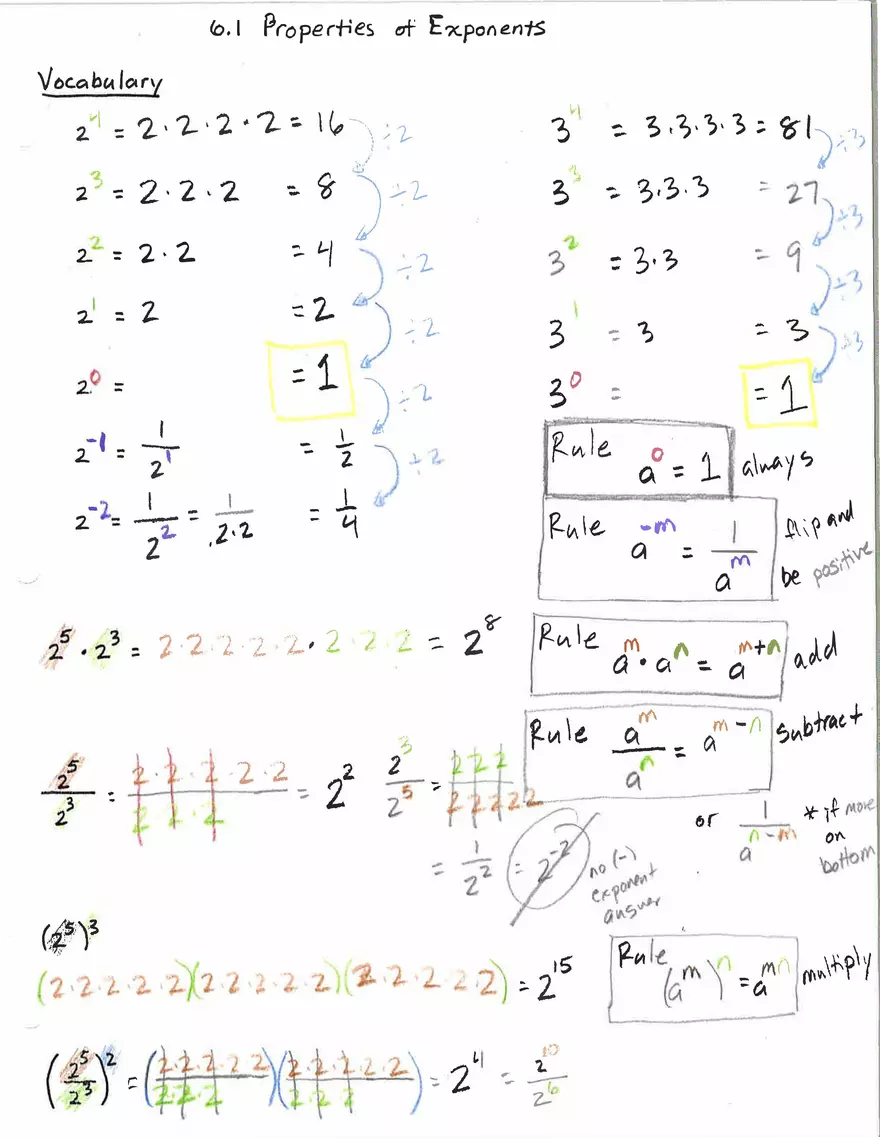 6.1 Properties of Exponents
Vocabulary
2⁴ = 2·2·2·2 = 16 ÷2
2³ = 2·2·2 = 8 ÷2
2² = 2·2 = 4 ÷2
2¹ = 2 = 2 ÷2
2⁰ = = 1 ÷2
2⁻¹ = 1/2¹ = 1/2 ÷2
2⁻² = 1/2² = 1/2·2 = 1/4
3⁴ = 3·3·3·3 = 81 ÷3
3³ = 3·3·3 = 27 ÷3
3² = 3·3 = 9 ÷3
3¹ = 3 = 3 ÷3
3⁰ = = 1
Rule a⁰ = 1 always
Rule a⁻ᵐ = 1/aᵐ flip and
be positive
2⁵ · 2³ = 2·2·2·2·2·2·2·2 = 2⁸
Rule aᵐ · aⁿ = aᵐ⁺ⁿ add
2⁵/2³ = 2·2·2·2·2/2·2·2 = 2²
2³/2⁵ = 2 2 2/2 2 2 2 2
= 1/2² = 2⁻²
no (-)
exponent
answer
Rule aᵐ/aⁿ = aᵐ⁻ⁿ subtract
or 1/aⁿ⁻ᵐ * if more
on
bottom
(2⁵)³
(2·2·2·2·2)(2·2·2·2·2)(2·2·2·2·2) = 2¹⁵
Rule (aᵐ)ⁿ = aᵐⁿ multiply
(2⁵/2³)² = (2·2·2·2·2/2·2·2)(2·2·2·2·2/2·2·2) = 2⁴ = 2¹⁰/2⁶